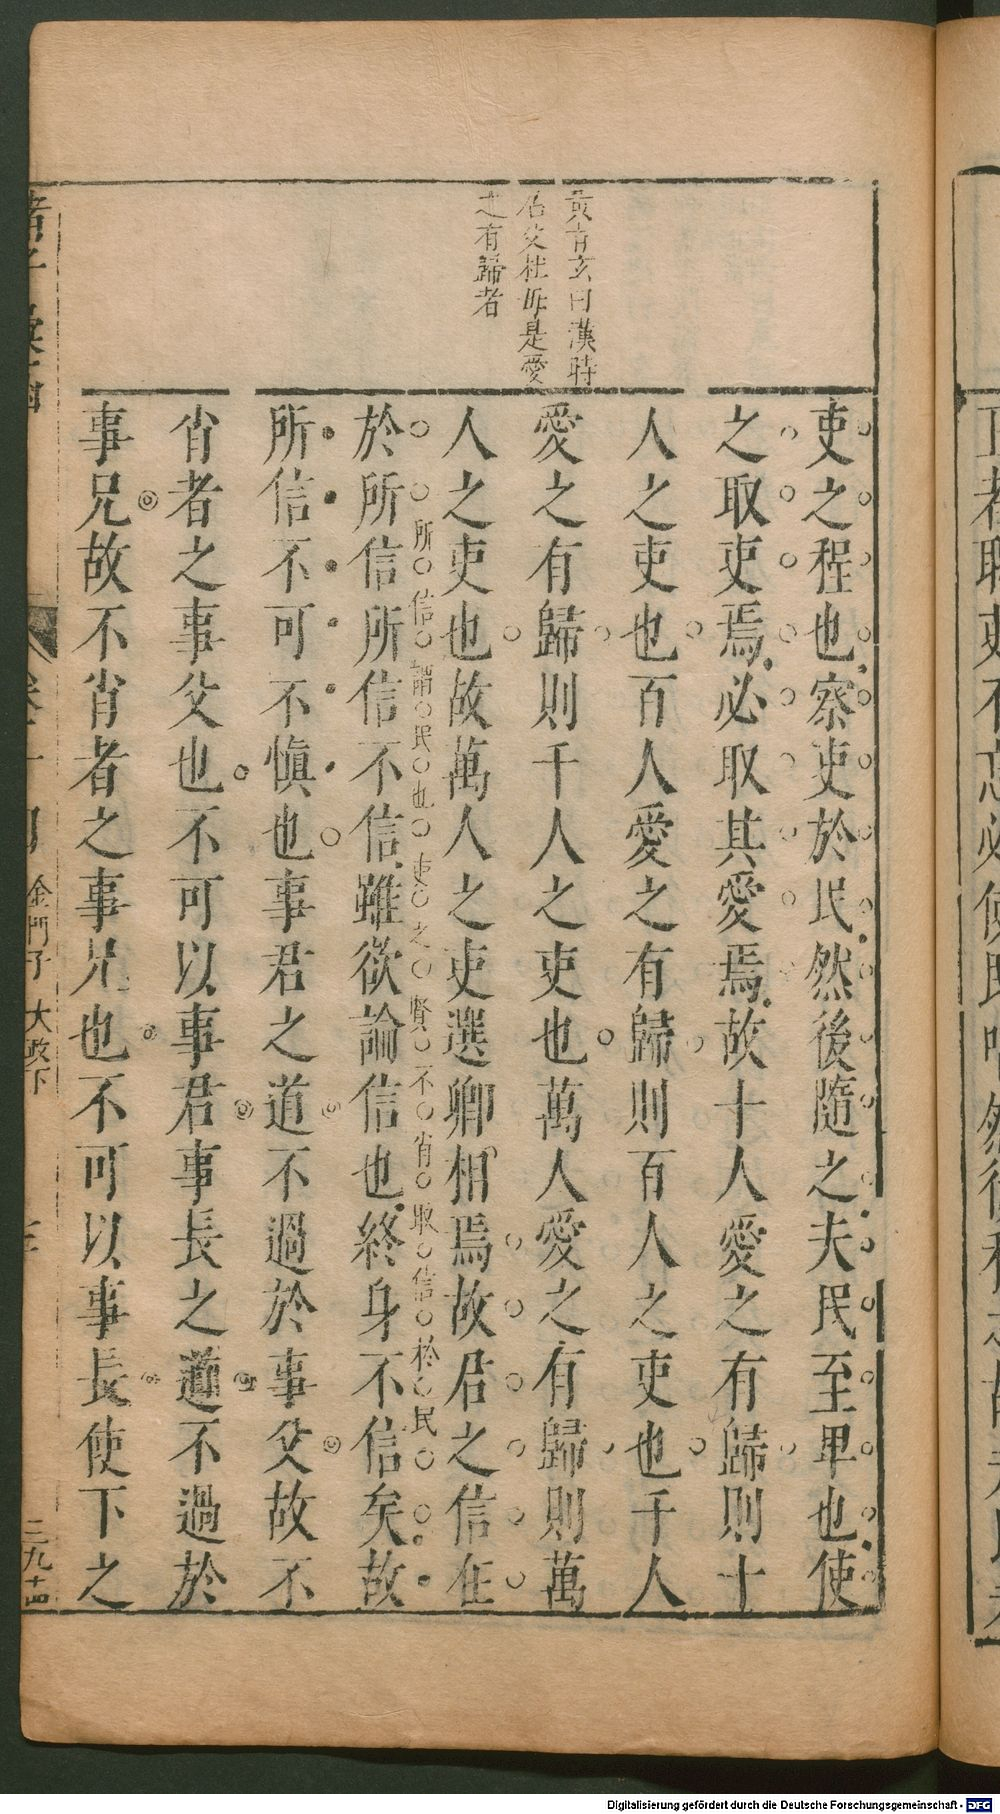 黄貞玄曰漢時
召父杜母是愛
之有歸者
吏之程也察吏於民然後隨之夫民至卑也使
之取吏焉必取其愛焉故十人愛之有歸則十
人之吏也百人愛之有歸則百人之吏也千人
愛之有歸則千人之吏也萬人愛之有歸則萬
人之吏也故萬人之吏選卿相焉故君之信在
所信謂民也吏之賢不肖取信於民
於所信所信不信雖欲論信也終身不信矣故
所信不可不慎也事君之道不過於事父故不
肖者之事父也不可以事君事長之道不過於
事兄故不肖者之事兄也不可以事長使下之
諸子彙函 卷十四 金門子 大政下
二九十四
Digitalisierung gefördert durch die Deutsche Forschungsgemeinschaft - DFG